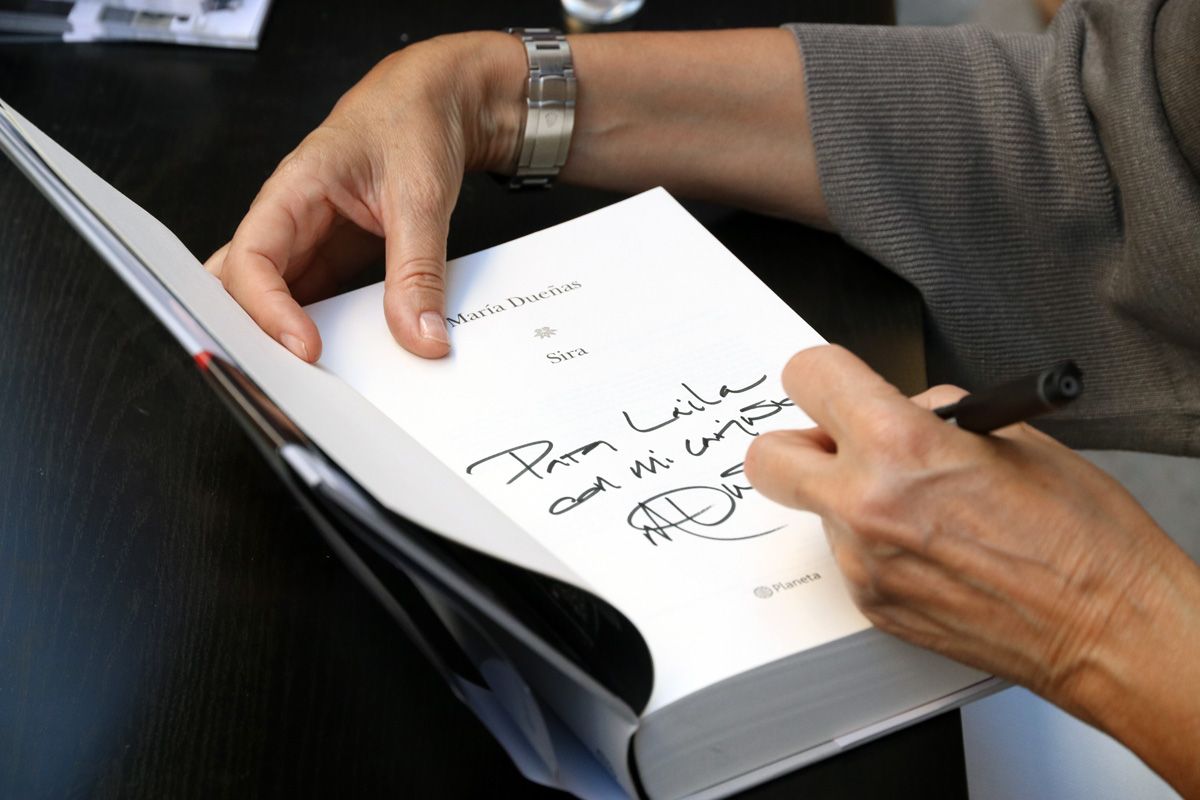 María Dueñas
Sira
Para Laila
con mi cariño
Planeta